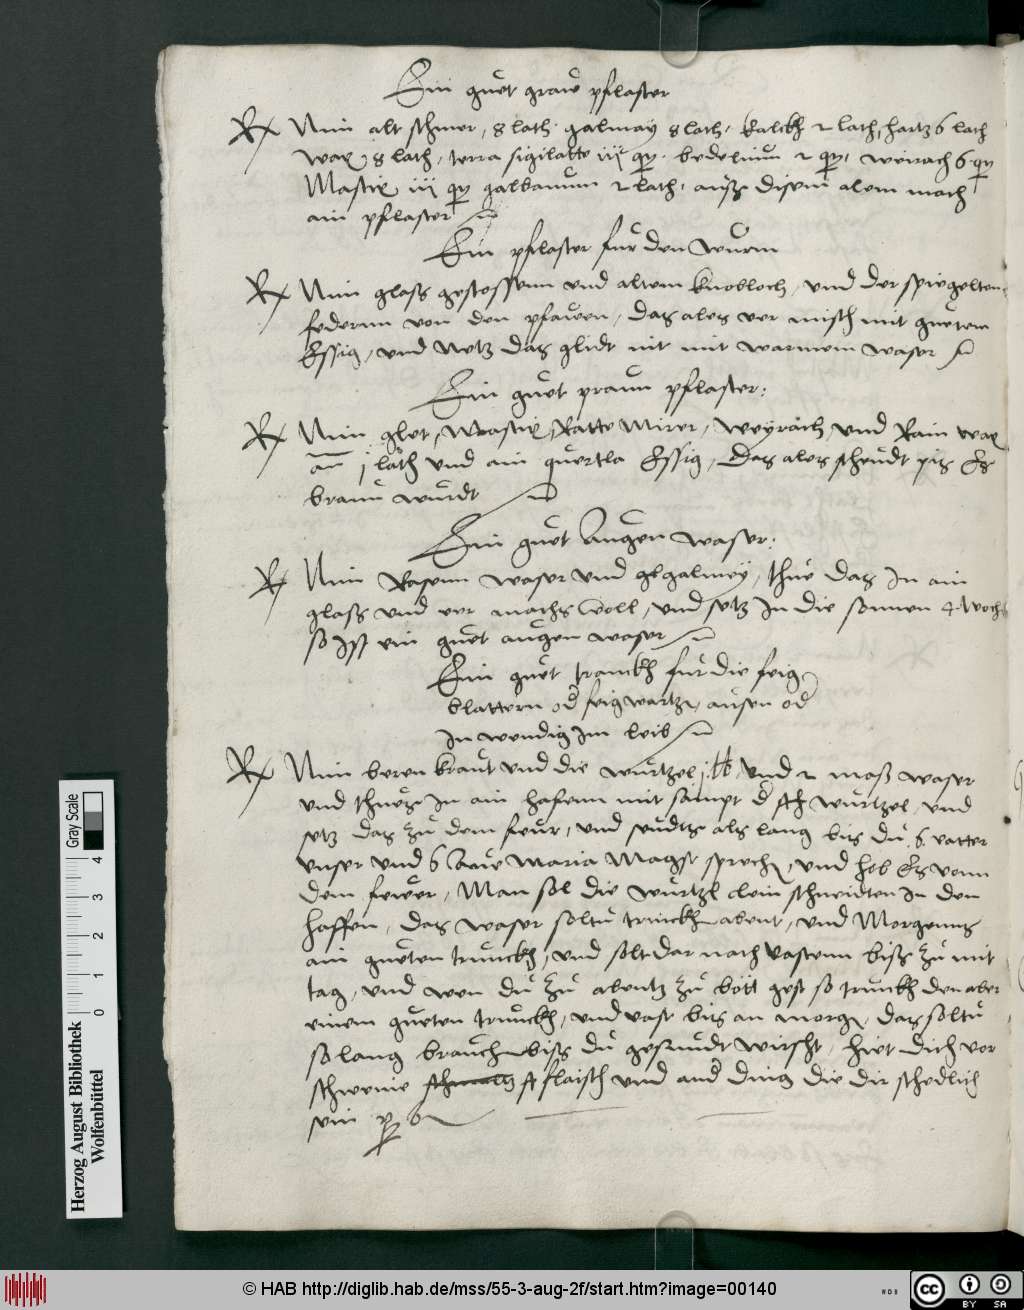 Ein guet graw pflaster
Rx Nim alt schmer, 8 lath galmay 8 lath, kalckh 2 lath, hartz 6 lath
wax 8 lath, terra sigilatte iii qu. bedelium 2 qu, weirach 6 qu
Mastix iii qu galbanum 2 lath, ausz disem alem mach
ain pflaster
Ein pflaster fur den wurm
Rx Nim glasz gestossenn und altem knobloch, und der spiegelten
federnn von den pfawen, das ales ver misch mit guetem
Essig, und Netz das glidt nit mit warmem waser
Ein guet praun pflaster:
Rx Nim glet, Mastix, Ratte Mirer, Weyrach, und Rain wax
an j lath und ain quertla Essig, das ales seudt pis Es
braun wurdt
Ein guet Augen waser:
Rx Nim Rasenn waser und galmey, thue das In ain
glasz und ver machs woll, und setz In die sonnen 4 woch
so Ist ein guet augen waser
Ein guet tranckh fur die feig
blattern od feigwartz, ausen od
In wendig Im leib
Rx Nim beren kraut und die wurtzel j lb, und 2 masz waser
und thues In ain hafenn mit sampt d wurtzel, und
setz das zu dem feur, und seudts als lang bis du 6 vatter
unser und 6 Aue Maria Magst sprech, und heb Es vonn
dem fewer, Man sol die wurtzl clein schneidten In den
haffen, das waser soltu trinckh abent, und Morgenns
ain gueten trunckh, und solt dar nach vastenn bisz zu mit
tag, und wen du zu abentz zu bött gest so trinckh den aber
einem gueten trunckh, und vast bis an morg, das soltu
so lang brauch bisz du gesundt wirscht, hiet dich vor
schweine flaisch und and ding die dir schedlich
sein
Herzog August Bibliothek
Wolfenbüttel
0 1 2 3 4
Gray Scale
© HAB http://diglib.hab.de/mss/55-3-aug-2f/start.htm?image=00140
cc BY SA